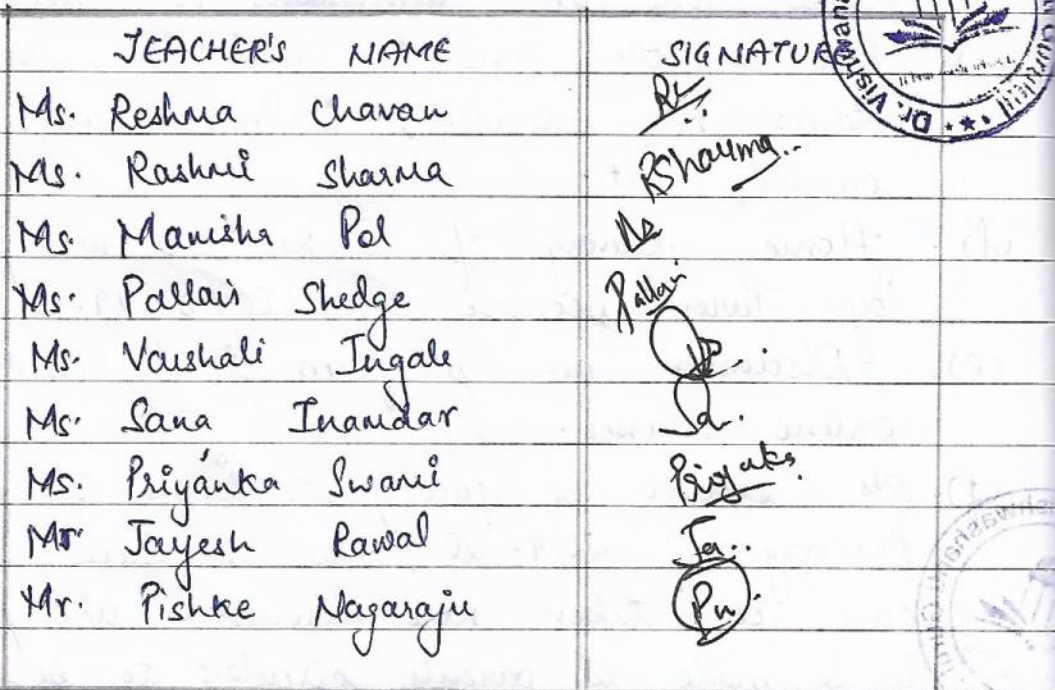 TEACHER'S NAME SIGNATURE
Ms. Reshma Chavan
Ms. Rashmi Sharma RSharma
Ms. Manisha Pol
Ms. Pallavi Shedge Pallavi
Ms. Vaishali Ingale
Ms. Sana Inamdar Sa.
Ms. Priyanka Swami
Mr. Jayesh Rawal Ja..
Mr. Pishke Nagaraju Pn.
Dr. Vishwana